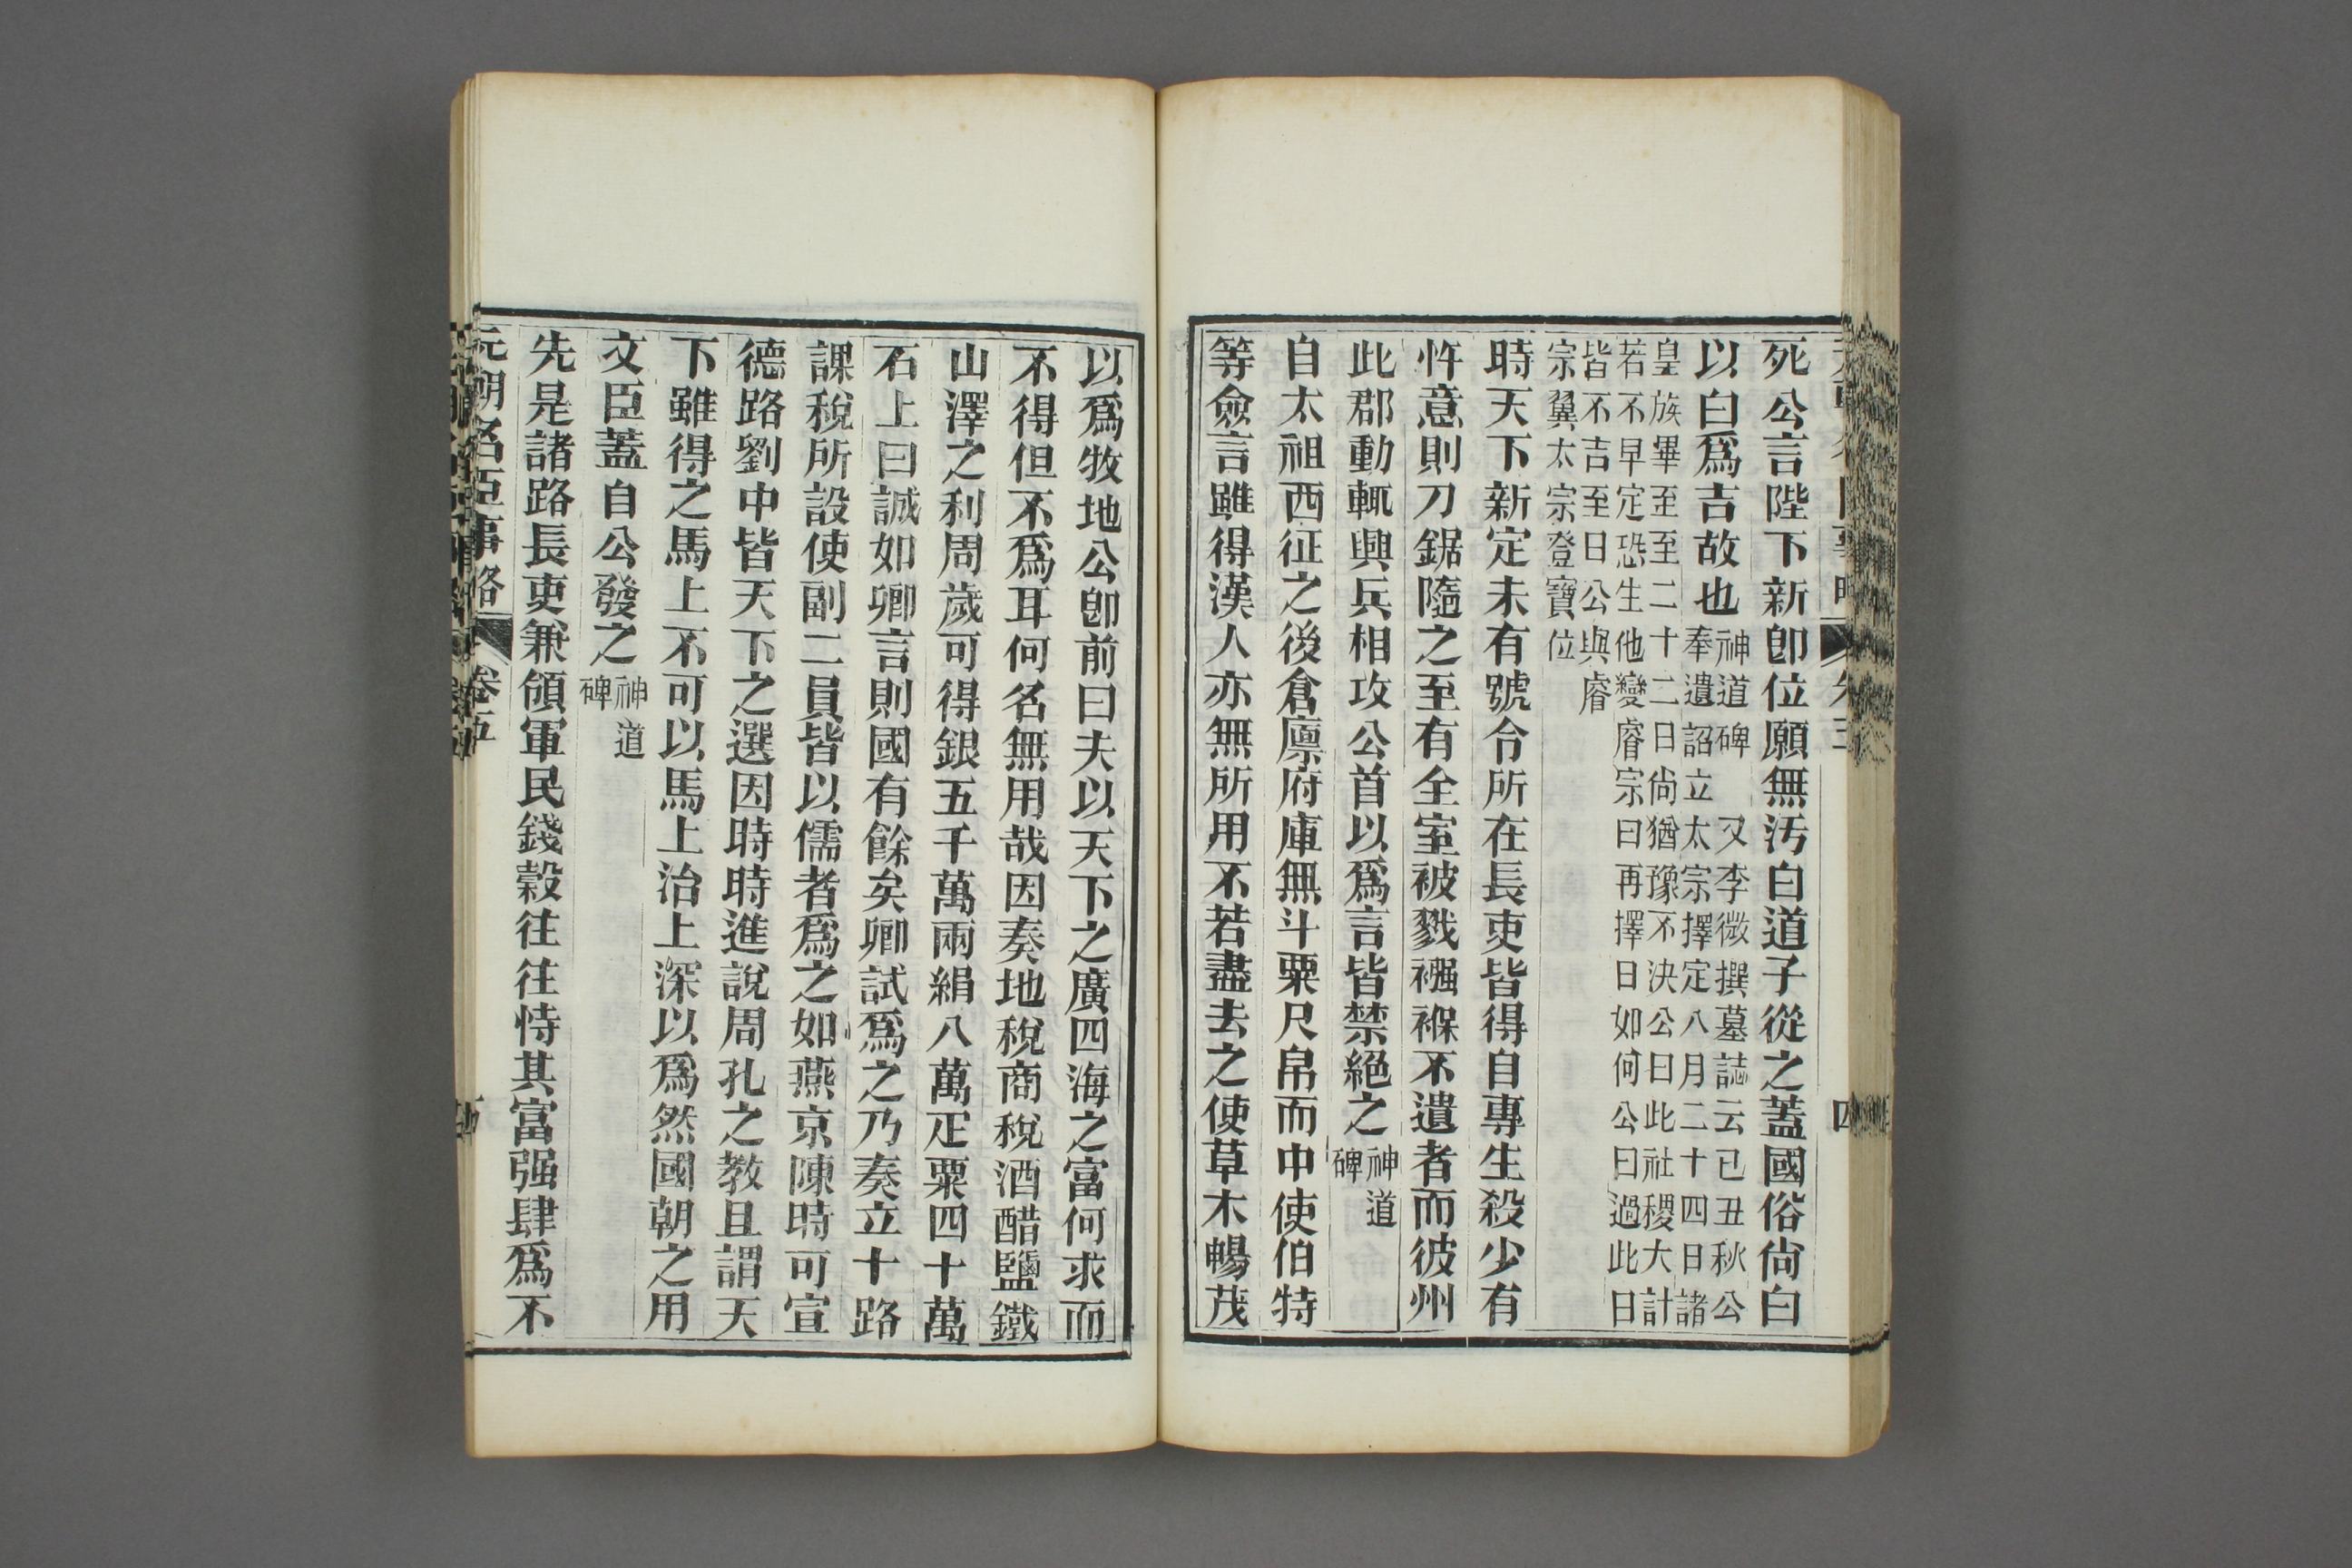 死公言陛下新卽位願無汚白道子從之蓋國俗尙白
以白爲吉故也神道碑 又李微撰墓誌云己丑秋公
奉遺詔立太宗擇定八月二十四日諸
皇族畢至至二十二日尙猶豫不決公曰此社稷大計
若不早定恐生他變睿宗曰再擇日如何公曰過此日
皆不吉至日公與睿
宗翼太宗登寶位
時天下新定未有號令所在長吏皆得自專生殺少有
忤意則刀鋸隨之至有全室被戮襁褓不遺者而彼州
此郡動輒興兵相攻公首以爲言皆禁絕之神道
碑
自太祖西征之後倉廩府庫無斗粟尺帛而中使伯特
等僉言雖得漢人亦無所用不若盡去之使草木暢茂
以爲牧地公卽前曰夫以天下之廣四海之富何求而
不得但不爲耳何名無用哉因奏地稅商稅酒醋鹽鐵
山澤之利周歲可得銀五千萬兩絹八萬疋粟四十萬
石上曰誠如卿言則國有餘矣卿試爲之乃奏立十路
課稅所設使副二員皆以儒者爲之如燕京陳時可宣
德路劉中皆天下之選因時時進說周孔之教且謂天
下雖得之馬上不可以馬上治上深以爲然國朝之用
文臣蓋自公發之神道
碑
先是諸路長吏兼領軍民錢穀往往恃其富强肆爲不
元朝名臣事略 卷五